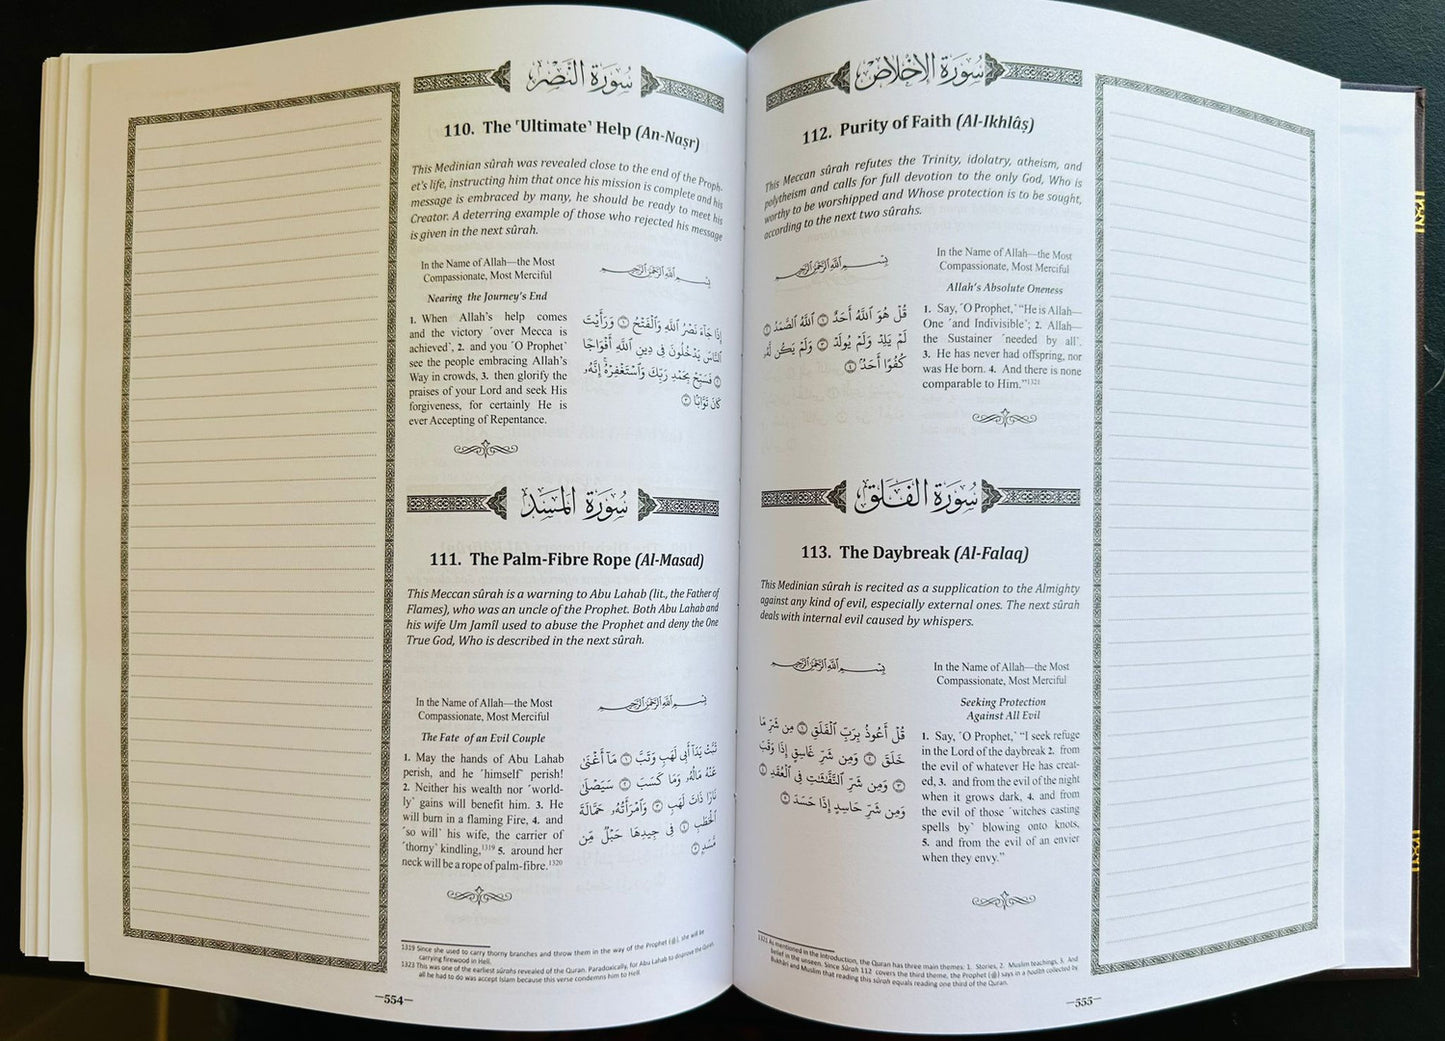 سُورَةُ النَّصْرِ
110. The ˹Ultimate˺ Help (An-Naṣr)
This Medinian sûrah was revealed close to the end of the Proph-
et's life, instructing him that once his mission is complete and his
message is embraced by many, he should be ready to meet his
Creator. A deterring example of those who rejected his message
is given in the next sûrah.
In the Name of Allah—the Most
Compassionate, Most Merciful
Nearing the Journey's End
1. When Allah's help comes
and the victory ˹over Mecca is
achieved˺, 2. and you ˹O Prophet˺
see the people embracing Allah's
Way in crowds, 3. then glorify the
praises of your Lord and seek His
forgiveness, for certainly He is
ever Accepting of Repentance.
بِسْمِ اللَّهِ الرَّحْمَٰنِ الرَّحِيمِ
إِذَا جَآءَ نَصْرُ ٱللَّهِ وَٱلْفَتْحُ ١ وَرَأَيْتَ
ٱلنَّاسَ يَدْخُلُونَ فِى دِينِ ٱللَّهِ أَفْوَاجًا
٢ فَسَبِّحْ بِحَمْدِ رَبِّكَ وَٱسْتَغْفِرْهُ إِنَّهُۥ
كَانَ تَوَّابًۢا ٣
سُورَةُ المَسَدِ
111. The Palm-Fibre Rope (Al-Masad)
This Meccan sûrah is a warning to Abu Lahab (lit., the Father of
Flames), who was an uncle of the Prophet. Both Abu Lahab and
his wife Um Jamîl used to abuse the Prophet and deny the One
True God, Who is described in the next sûrah.
In the Name of Allah—the Most
Compassionate, Most Merciful
The Fate of an Evil Couple
1. May the hands of Abu Lahab
perish, and he ˹himself˺ perish!
2. Neither his wealth nor ˹world-
ly˺ gains will benefit him. 3. He
will burn in a flaming Fire, 4. and
˹so will˺ his wife, the carrier of
˹thorny˺ kindling,1319 5. around her
neck will be a rope of palm-fibre.1320
بِسْمِ اللَّهِ الرَّحْمَٰنِ الرَّحِيمِ
تَبَّتْ يَدَآ أَبِى لَهَبٍ وَتَبَّ ١ مَآ أَغْنَىٰ
عَنْهُ مَالُهُۥ وَمَا كَسَبَ ٢ سَيَصْلَىٰ
نَارًا ذَاتَ لَهَبٍ ٣ وَٱمْرَأَتُهُۥ حَمَّالَةَ
ٱلْحَطَبِ ٤ فِى جِيدِهَا حَبْلٌ مِّن
مَّسَدٍۭ ٥
1319 Since she used to carry thorny branches and throw them in the way of the Prophet (ﷺ), she will be
carrying firewood in Hell.
1323 This was one of the earliest sûrahs revealed of the Quran. Paradoxically, for Abu Lahab to disprove the Quran,
all he had to do was accept Islam because this verse condemns him to Hell.
—554—
سُورَةُ الإِخْلَاصِ
112. Purity of Faith (Al-Ikhlâṣ)
This Meccan sûrah refutes the Trinity, idolatry, atheism, and
polytheism and calls for full devotion to the only God, Who is
worthy to be worshipped and Whose protection is to be sought,
according to the next two sûrahs.
بِسْمِ اللَّهِ الرَّحْمَٰنِ الرَّحِيمِ
قُلْ هُوَ ٱللَّهُ أَحَدٌ ١ ٱللَّهُ ٱلصَّمَدُ ٢
لَمْ يَلِدْ وَلَمْ يُولَدْ ٣ وَلَمْ يَكُن لَّهُۥ
كُفُوًا أَحَدٌۢ ٤
In the Name of Allah—the Most
Compassionate, Most Merciful
Allah's Absolute Oneness
1. Say, ˹O Prophet,˺ “He is Allah—
One ˹and Indivisible˺; 2. Allah—
the Sustainer ˹needed by all˺.
3. He has never had offspring, nor
was He born. 4. And there is none
comparable to Him.”1321
سُورَةُ الفَلَقِ
113. The Daybreak (Al-Falaq)
This Medinian sûrah is recited as a supplication to the Almighty
against any kind of evil, especially external ones. The next sûrah
deals with internal evil caused by whispers.
بِسْمِ اللَّهِ الرَّحْمَٰنِ الرَّحِيمِ
قُلْ أَعُوذُ بِرَبِّ ٱلْفَلَقِ ١ مِن شَرِّ مَا
خَلَقَ ٢ وَمِن شَرِّ غَاسِقٍ إِذَا وَقَبَ
٣ وَمِن شَرِّ ٱلنَّفَّـٰثَـٰتِ فِى ٱلْعُقَدِ ٤
وَمِن شَرِّ حَاسِدٍ إِذَا حَسَدَ ٥
In the Name of Allah—the Most
Compassionate, Most Merciful
Seeking Protection
Against All Evil
1. Say, ˹O Prophet,˺ “I seek refuge
in the Lord of the daybreak 2. from
the evil of whatever He has creat-
ed, 3. and from the evil of the night
when it grows dark, 4. and from
the evil of those ˹witches casting
spells by˺ blowing onto knots,
5. and from the evil of an envier
when they envy.”
1321 As mentioned in the introduction, the Quran has three main themes: 1. Stories, 2. Muslim teachings, 3. And
belief in the unseen. Since Sûrah 112 covers the third theme, the Prophet (ﷺ) says in a ḥadîth collected by
Bukhâri and Muslim that reading this sûrah equals reading one third of the Quran.
—555—